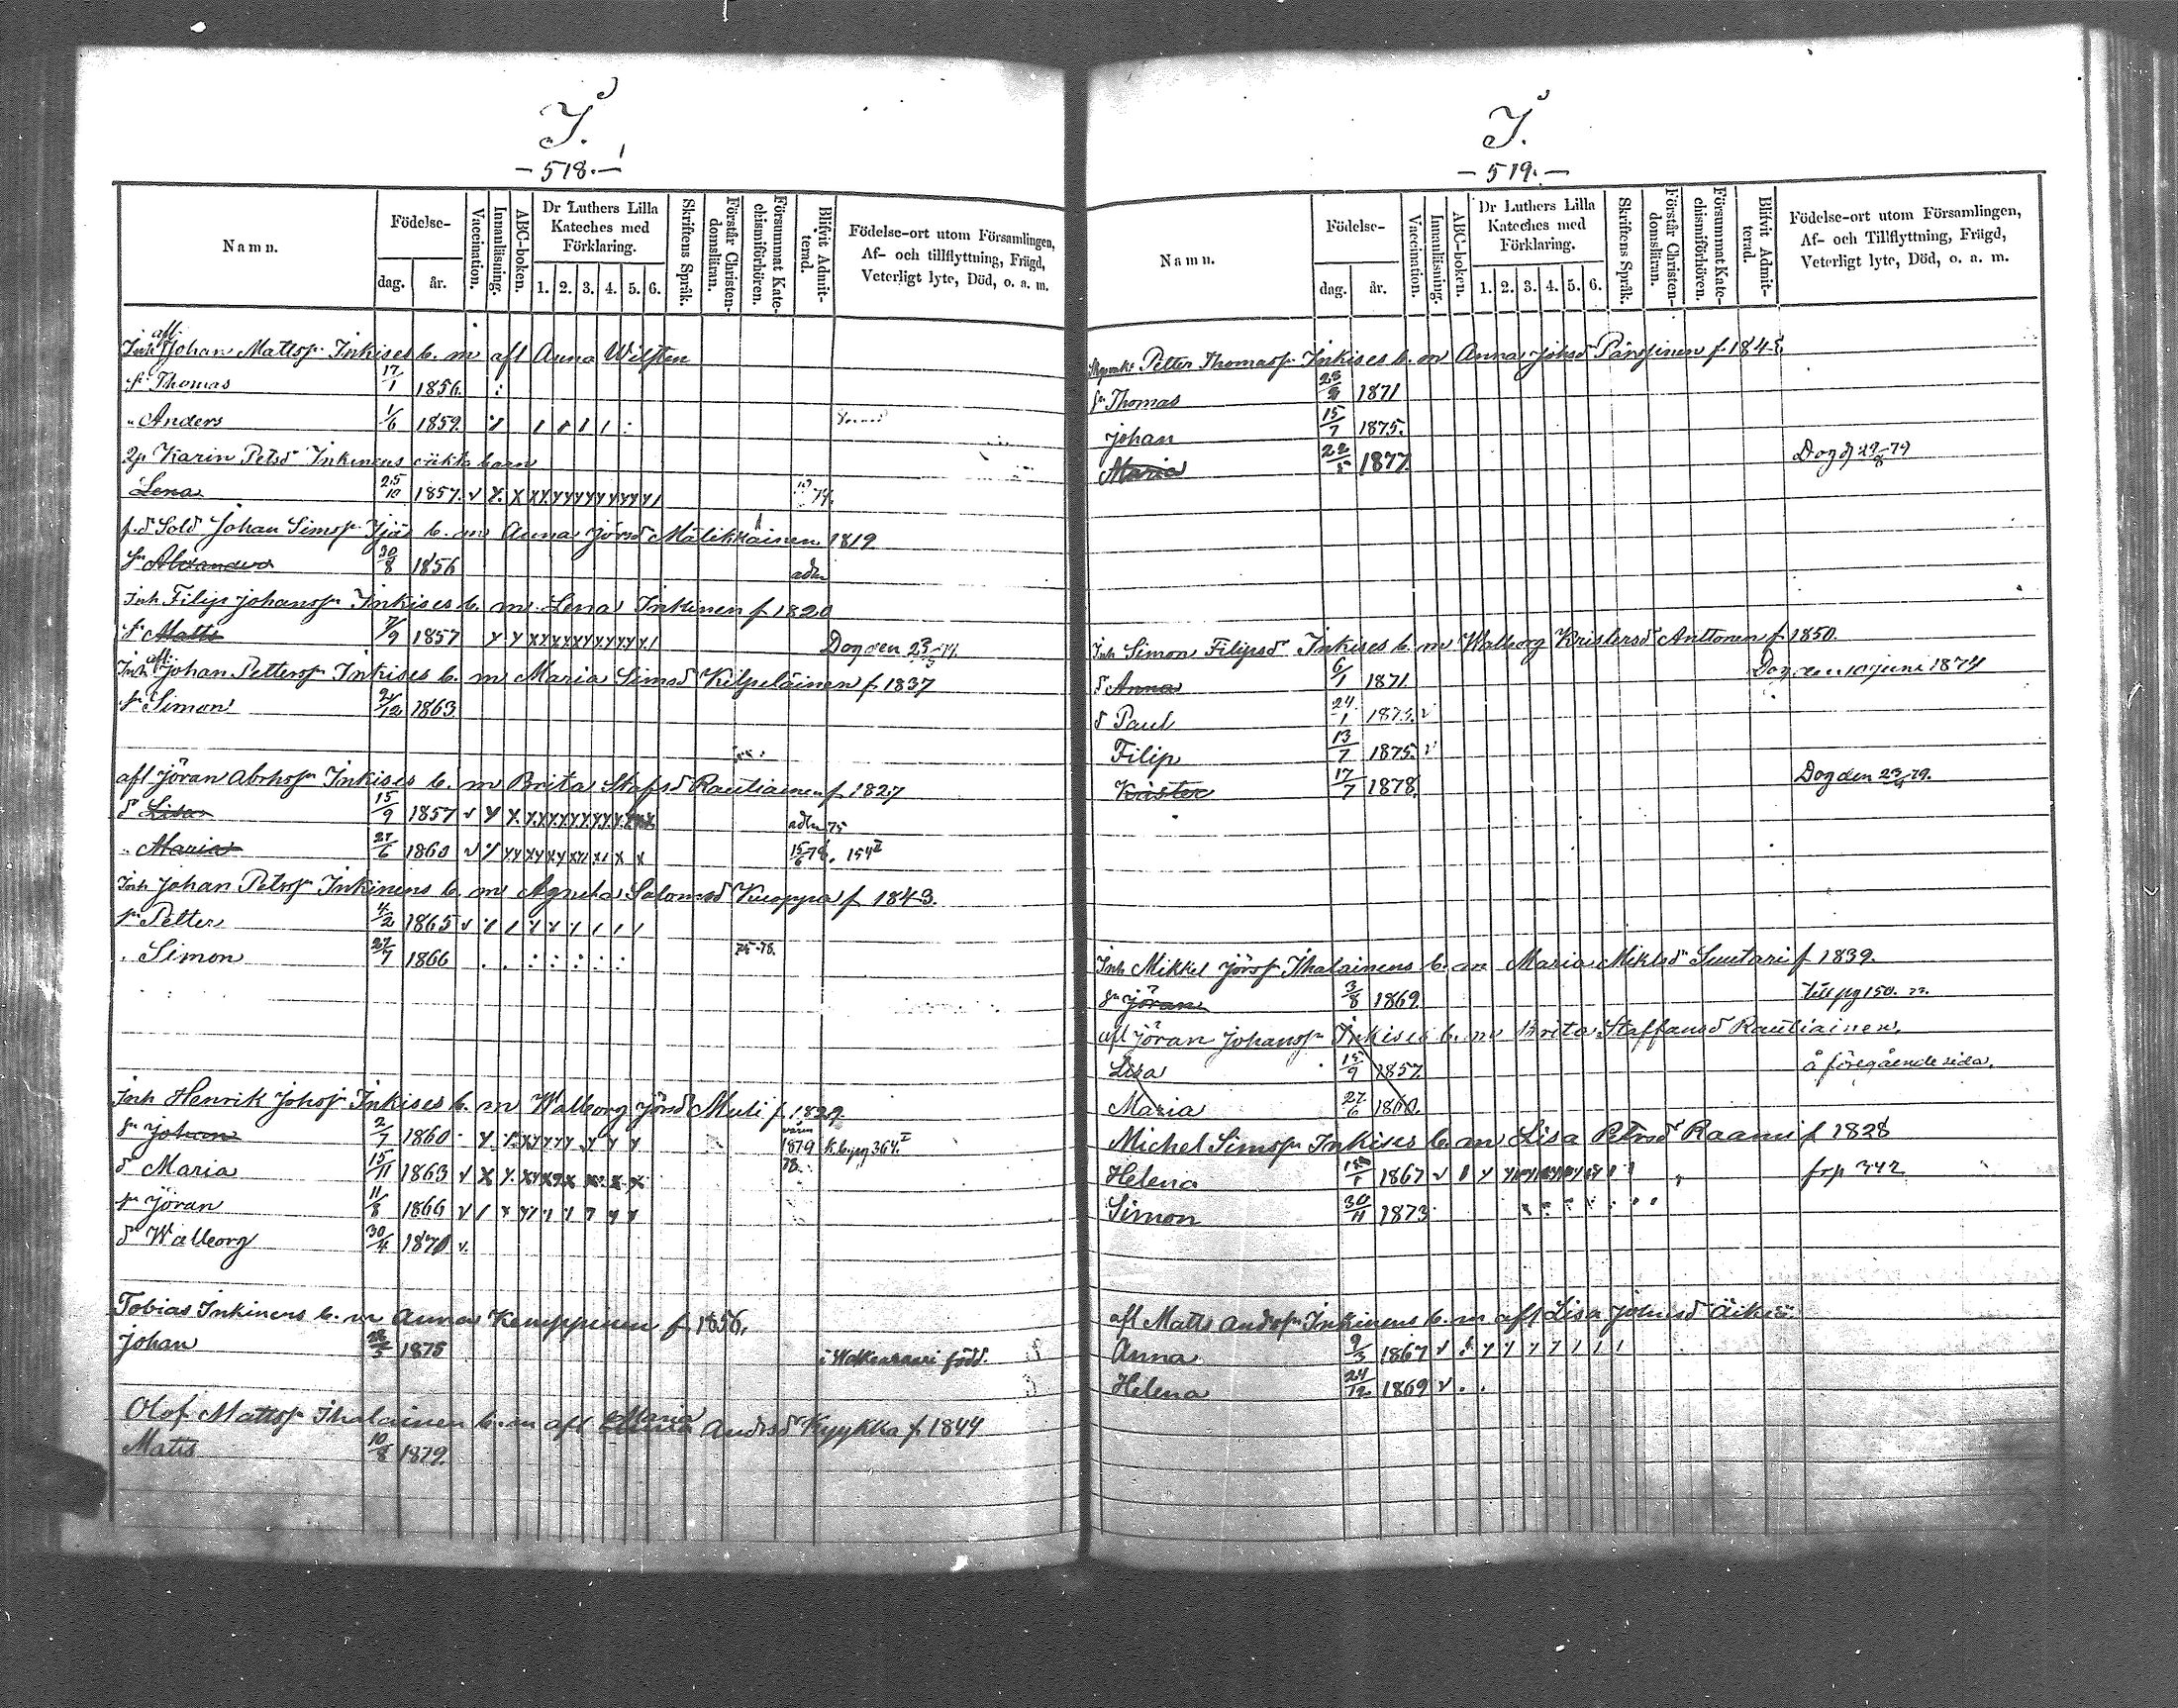 I.
– 518. –
Namn.
Födelse-
dag.
år.
Vaccination.
Innanläsning.
ABC-boken.
Dr Luthers Lilla
Kateches med
Förklaring.
1. 2. 3. 4. 5. 6.
Skriftens Språk.
Förstår Christen-
domsläran.
Försummat Kate-
chismiförhören.
Blifvit Admit-
terad.
Födelse-ort utom Församlingen,
Af- och tillflyttning, Frägd,
Veterligt lyte, Död, o. a. m.
Inh afl. Johan Mattsn Inkises b. m afl Anna
sn Thomas 17/1 1856.
" Anders 1/6 1859
Karin Petsd Inkinens oäkta barn
Lena 25/10 1857. 74.
f.d Sold Johan Simsn b. m Anna Jörsd 1819
sn Alexander 30/8 1856 adm
Inh Filip Johansn Inkises b. m Lena Inkinen f. 1820
sn Matts 1857 Dog den
Inh afl. Johan Pettersn Inkises b. m Maria Simsd Kilpeläinen f. 1837
sn Simon 1863
afl Jöran Abrhsn Inkises b. m Brita Stafsd Rautiainen f. 1827
d Lisa 15/9 1857 adm 75
" Maria 27/6 1860 15/6 78. 154 II
Inh Johan Petrsn Inkinens b. m Agneta Salomsd Kuoppa f 1843.
sn Petter 4/2 1865
" Simon 27/7 1866 75-78.
Inh Henrik Johsn Inkises b. m Walborg Jörsd Muli f. 1829
sn Johan 2/7 1860 1879 k.b. pg 364. I
d Maria 15/11 1863 78.
sn Jöran 11/8 1866
d Walborg 30/4 1870
Tobias Inkinens b. m Anna Kemppinen f. 1856.
Johan 1878 i Walkeasaari född.
Olof Mattsn Ihalainen b. m afl Maria Andrsd Kyykka f. 1844
Matts 10/8 1879.
I.
– 519. –
Namn.
Födelse-
dag.
år.
Vaccination.
Innanläsning.
ABC-boken.
Dr Luthers Lilla
Kateches med
Förklaring.
1. 2. 3. 4. 5. 6.
Skriftens Språk.
Förstår Christen-
domsläran.
Försummat Kate-
chismiförhören.
Blifvit Admit-
terad.
Födelse-ort utom Församlingen,
Af- och Tillflyttning, Frägd,
Veterligt lyte, Död, o. a. m.
Petter Thomassn Inkises b. m Anna Johsd f. 1845
sn Thomas 1871
Johan 15/7 1875.
Maria 22/5 1877 Dog d 79
Inh Simon Filipsd Inkises b. m Walborg Kristersd Anttonen f 1850.
d Anna 6/1 1871. Dog den 10 juni 1874
d Paul 24/1
Filip 13/7 1875.
Krister 17/7 1878. Dog den 79.
Inh Mikkel Jörsn Ihalainens b. m Maria Miklsd Suutari f 1839.
sn Jöran 3/8 1869. till pg 150.
afl Jöran Johansn Inkises b. m Brita Staffansd Rautiainen.
Lisa 15/9 1857. å föregående sida.
Maria 27/6 1860.
Michel Simsn Inkises b. m Lisa Petrsd Raami f 1828
Helena 1867 frp 342
Simon 30/11 1873
afl Matts Andrsn Inkinens b. m afl Lisa Johnsd
Anna 9/3 1867
Helena 24/12 1869